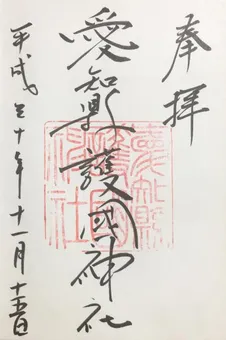 奉拝
愛知縣護國神社
平成三十年十一月十五日
愛知縣護國神社